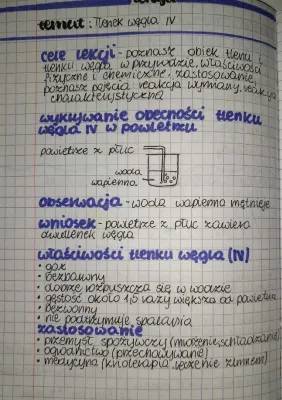 temat: Tlenek węgla IV
cele lekcji - poznasz obieg tlenu
tlenku węgla w przyrodzie, właściwości
fizyczne i chemiczne, zastosowanie,
poznasz pojęcia reakcja wymiany, reakcja
charakterystyczna
wykrywanie obecności tlenku
węgla IV w powietrzu
powietrze z płuc
woda
wapienna
obserwacja - woda wapienna mętnieje
wniosek - powietrze z płuc zawiera
dwutlenek węgla
właściwości tlenku węgla (IV)
• gaz
• bezbarwny
• dobrze rozpuszcza się w wodzie
• gęstość około 1,5 razy większa od powietrza
• bezwonny
• nie podtrzymuje spalania
zastosowanie
• przemysł spożywczy (mrożenie, schładzanie)
• ogrodnictwo (przechowywanie)
• medycyna (krioterapia, leczenie zimnem)